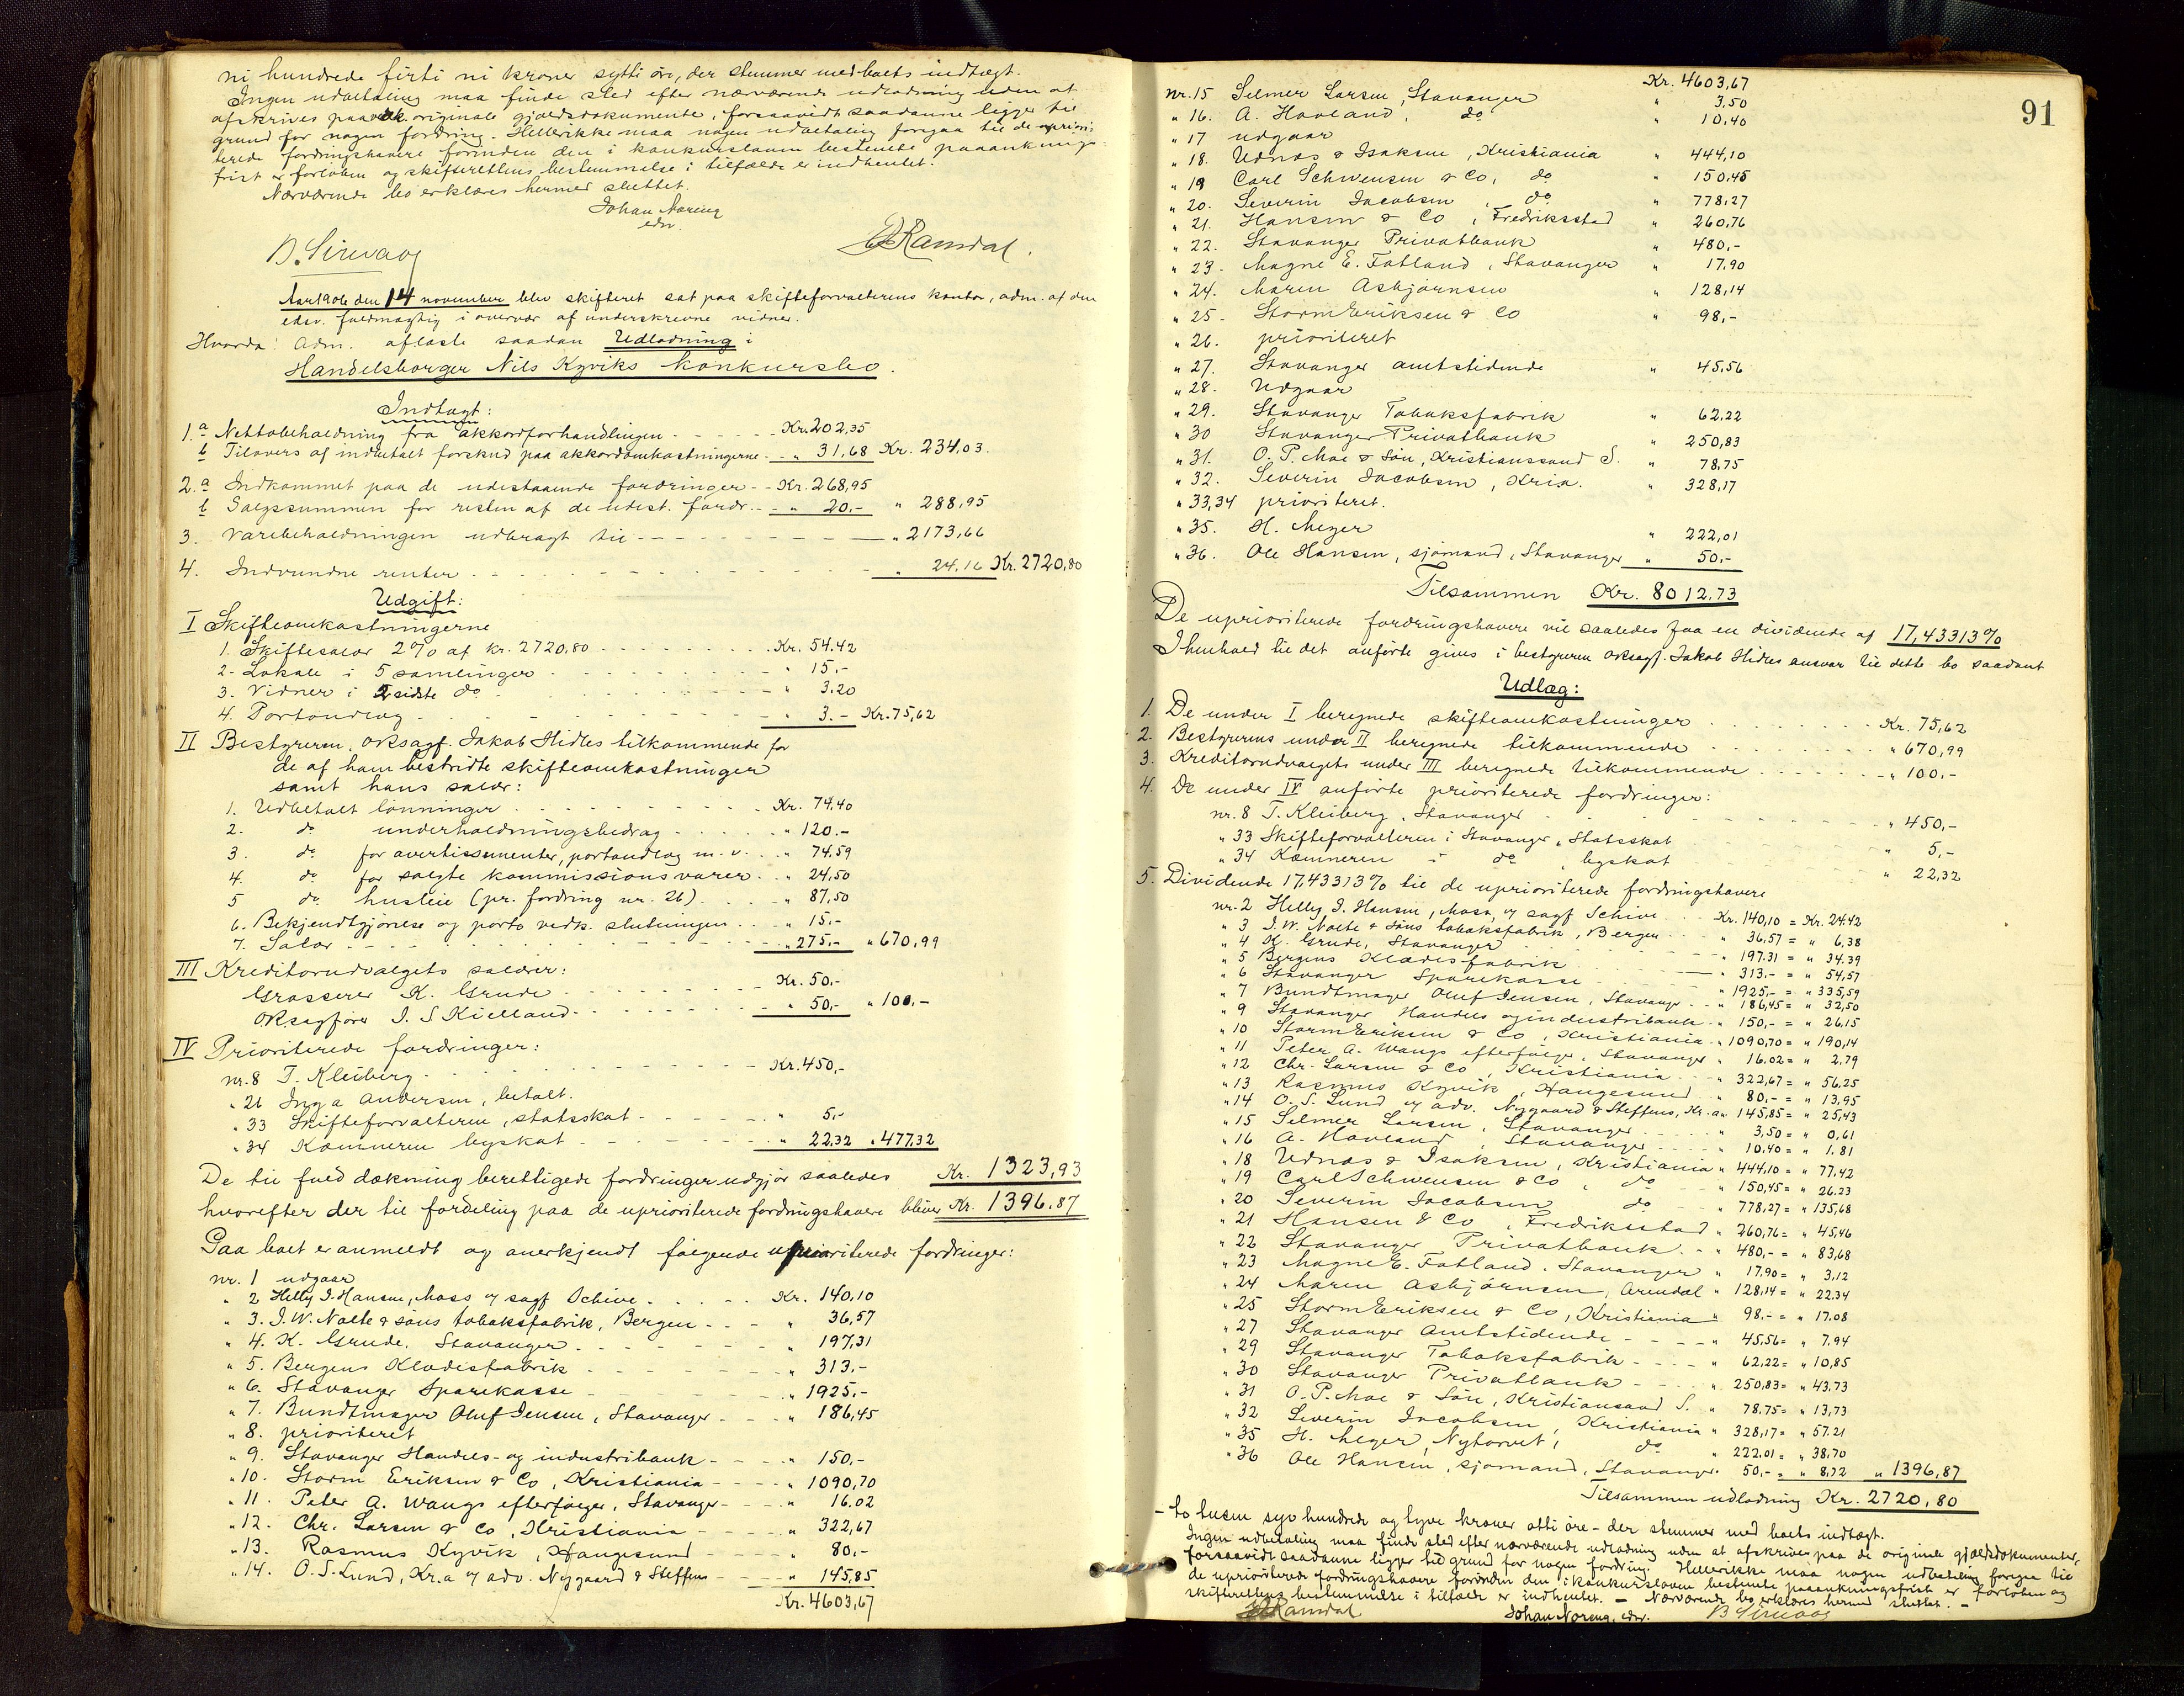 ni hundrede firti ni kroner sytti öre, der stemmer med boets indtægt.
Ingen udbetaling maa finde sted efter nærværende udlodning uden at
afskrives paa de originale gjældsdokumenter, forsaavidt saadanne ligger til
grund for nogen fordring. Hellerikke maa nogen udbetaling foregaa til de upriori-
terede fordringshavere forinden den i konkursloven bestemte paaanknings-
frist er forløben og skifterettens bestemmelse i tilfælde er indhentet.
Nærværende bo erklæres hermed sluttet.
Johan Noreng
edsv.
B. Sirevaag
Ramdal.
Aar 1906 den 14 november blev skifteret sat paa skifteforvalterens kontor, adm. af den
edsv. fuldmægtig i overvær af underskrevne vidner.
Hvorda: Adm. aflæste saadan Udlodning i
Handelsborger Nils Kyviks konkursbo.
Indtægt:
1. a Nettobeholdning fra akkordforhandlingen - - - - Kr. 202,35
b Tilovers af indbetalt forskud paa akkordomkostningerne - - " 31,68 Kr. 234,03.
2. a Indkommet paa de udestaaende fordringer - - Kr. 268,95
b Salgssummen for resten af de udest. fordr. - - " 20,- " 288,95
3. Varebeholdningen udbragt til - - - - " 2173,66
4. Indvundne renter - - - - " 24,16 Kr. 2720,80
Udgift:
I Skifteomkostningerne
1. Skiftesalær 2% af kr. 2720,80 - - - Kr. 54.42
2. Lokale i 5 samlinger - - - " 15.-
3. Vidner i 2 sidste do - - - " 3.20
4. Portoudlæg - - - " 3.- Kr. 75,62
II Bestyreren, orsagf. Jakob Hidles tilkommende for
de af ham bestridte skifteomkostninger
samt hans salær:
1. Udbetalt lönninger - - - Kr. 74.40
2. do underholdningsbidrag - - - " 120.-
3. do for avertissementer, portoudlæg m.v. - " 74,59
4. do for solgte kommissionsvarer - " 24,50
5 do husleie (pr. fordring nr. 26) - - " 87,50
6. Bekjendtgjörelse og porto vedk. slutningen - - " 15.-
7. Salær - - - " 275,- " 670,99
III Kreditorudvalgets salærer:
Grosserer K. Grude - - - Kr. 50.-
orsagförer J. S Kielland - - - " 50,- " 100,-
IV Prioriterede fordringer:
nr. 8 T. Kleiberg - - - Kr. 450,-
" 26 Inga Andersen, betalt.
" 33 Skifteforvalteren, statsskat - - - " 5,-
" 34 Kæmneren byskat - - - " 22,32 " 477,32
De til fuld dækning berettigede fordringer udgjör saaledes Kr. 1323,93
hvorefter der til fordeling paa de uprioriterede fordringshavere bliver Kr. 1396,87
Paa boet er anmeldt og anerkjendt følgende uprioriterede fordringer:
nr. 1 udgaar
" 2 Helly J. Hansen, Moss og sagf Schive - - - Kr. 140,10
" 3. J. W. Nolte & söns tobaksfabrik, Bergen - - - " 36,57
" 4. K. Grude, Stavanger - - - " 197,31
" 5. Bergens Klædesfabrik - - - " 313.-
" 6. Stavanger Sparekasse - - - " 1925,-
" 7. Bundtmager Oluf Jensen, Stavanger - - " 186,45
" 8. prioriteret
" 9. Stavanger Handels- og industribank - - - " 150,-
" 10. Storm Eriksen & Co, Kristiania - - " 1090,70
" 11. Peter A. Wangs efterfølger, Stavanger - - - " 16.02
" 12. Chr. Larsen & Co, Kristiania - - " 322,67
" 13. Rasmus Kyvik, Haugesund - - " 80,-
" 14. O. S. Lund, Kr.a og adv. Nygaard & Steffens - - " 145,85
Kr. 4603,67
91
Kr. 4603,67
nr. 15 Selmer Larsen, Stavanger " 3,50
" 16. A. Havland, do " 10,40
" 17 udgaar
" 18. Udnæs & Isaksen, Kristiania " 444,10
" 19 Carl Schwensen & Co, do " 150,45
" 20. Severin Jacobsen, do " 778,27
" 21. Hansen & Co, Fredriksstad " 260,76
" 22. Stavanger Privatbank " 480,-
" 23. Magne E. Fatland, Stavanger " 17,90
" 24. Maren Asbjørnsen " 128,14
" 25. Storm Eriksen & Co " 98,-
" 26. prioriteret
" 27. Stavanger amtstidende " 45,56
" 28. Udgaar
" 29. Stavanger Tobaksfabrik " 62,22
" 30 Stavanger Privatbank " 250,83
" 31. O. P. Moe & Sön, Kristianssand S. " 78,75
" 32. Severin Jacobsen, Kria. " 328,17
" 33,34 prioriteret.
" 35. H. Meyer " 222,01
" 36. Ole Hansen, sjömand, Stavanger " 50,-
Tilsammen Kr. 8012,73
De uprioriterede fordringshavere vil saaledes faa en dividende af 17,43313%
I henhold til det anførte gives i bestyreren orsagf. Jakob Hidles ansvar til dette bo saadant
Udlæg:
1. De under I beregnede skifteomkostninger - - - Kr. 75,62
2. Bestyrerens under II beregnede tilkommende - - - " 670,99
3. Kreditorudvalgets under III beregnede tilkommende - - - " 100.-
4. De under IV anførte prioriterede fordringer:
nr. 8 T. Kleiberg, Stavanger - - - " 450,-
" 33 Skifteforvalteren i Stavanger, Statsskat " 5,-
" 34 Kæmneren i do, byskat " 22,32
5. Dividende 17,43313% til de uprioriterede fordringshavere
nr. 2 Helly J. Hansen, Moss, og sagf Schive - - Kr. 140,10 = Kr. 24.42
" 3 J. W. Nolte & Söns tobaksfabrik, Bergen - - " 36,57 = " 6,38
" 4 K. Grude, Stavanger - - " 197.31 = " 34.39
" 5 Bergens Klædesfabrik - - " 313.- = " 54,57
" 6 Stavanger Sparekasse - - " 1925,- = " 335,59
" 7 Bundtmager Oluf Jensen, Stavanger - - " 186,45 = " 32,50
" 9 Stavanger Handels og industribank - " 150,- = " 26,15
" 10 Storm Eriksen & Co, Kristiania - " 1090,70 = " 190,14
" 11 Peter A. Wangs efterfølger, Stavanger " 16.02 = " 2.79
" 12 Chr. Larsen & Co, Kristiania - - " 322,67 = " 56,25
" 13 Rasmus Kyvik, Haugesund - " 80,- = " 13,95
" 14 O. S. Lund og adv. Nygaard & Steffens, Kr.a " 145,85 = " 25,43
" 15 Selmer Larsen, Stavanger - - " 3,50 = " 0,61
" 16 A. Havland, Stavanger - - " 10,40 = " 1.81
" 18 Udnæs & Isaksen, Kristiania " 444,10 = " 77,42
" 19 Carl Schwensen & Co, do " 150,45 = " 26.23
" 20 Severin Jacobsen do - " 778,27 = " 135,68
" 21 Hansen & Co, Fredriksstad " 260,76 = " 45,46
" 22 Stavanger Privatbank - - " 480,- = " 83,68
" 23 Magne E. Fatland, Stavanger " 17,90 = " 3,12
" 24 Maren Asbjörnsen, Arendal " 128,14 = " 22.34
" 25 Storm Eriksen & Co, Kristiania " 98,- = " 17.08
" 27 Stavanger Amtstidende - - - " 45,56 = " 7.94
" 29 Stavanger Tobaksfabrik - - - " 62,22 = " 10,85
" 30 Stavanger Privatbank - - - " 250,83 = " 43.73
" 31 O. P. Moe & Sön, Kristianssand S. " 78.75 = " 13,73
" 32 Severin Jacobsen, Kristiania " 328,17 = " 57.21
" 35 H. Meyer, Nytorvet, do " 222.01 = " 38,70
" 36 Ole Hansen, sjömand, Stavanger. 50,- = " 8,72 " 1396,87
Tilsammen udlodning Kr. 2720,80
- to tusen syv hundrede og tyve kroner otti öre - der stemmer med boets indtægt.
Ingen udbetaling maa finde sted efter nærværende udlodning uden at afskrives paa de originale gjældsdokumenter,
forsaavidt saadanne ligger til grund for nogen fordring. Hellerikke maa nogen udbetaling foregaa til
de uprioriterede fordringshavere forinden den i konkursloven bestemte paaankningsfrist er forløben og
skifterettens bestemmelse i tilfælde er indhentet. - Nærværende bo erklæres hermed sluttet. -
Ramdal Johan Noreng, edsv. B Sirevaag